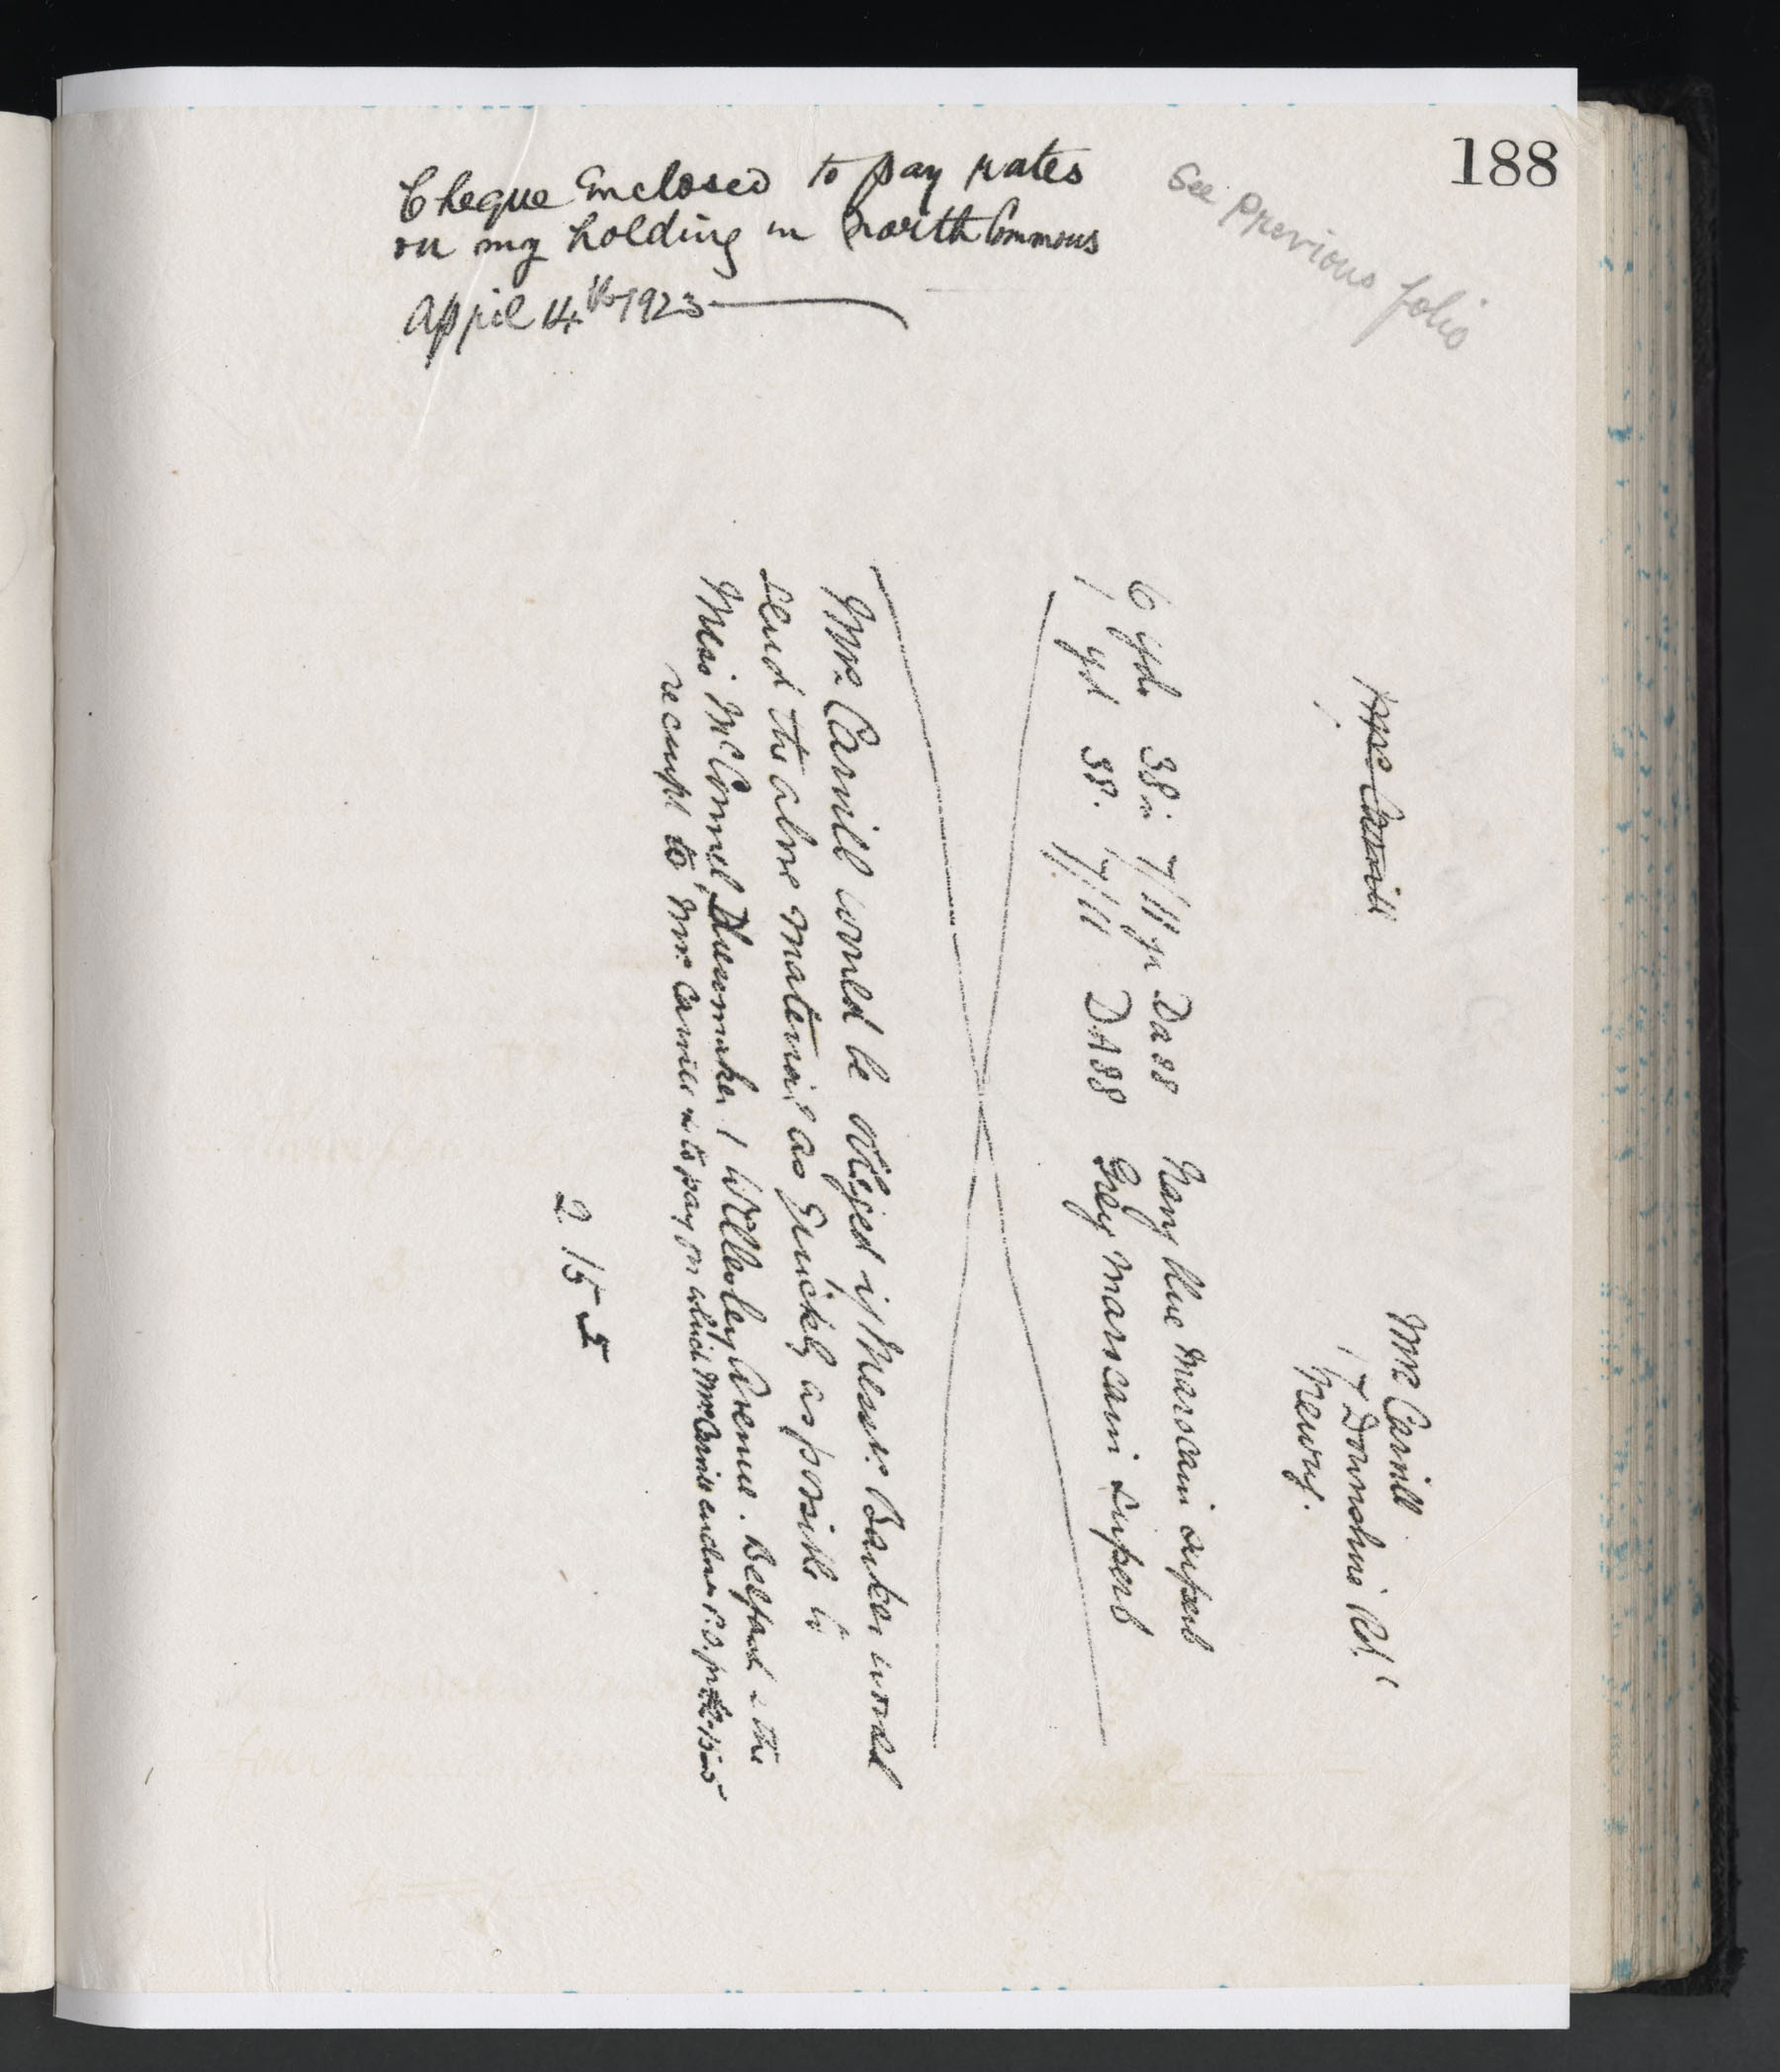 188
See previous folio
Cheque Enclosed to pay rates
on my holding in North Commons
April 14th 1923
Mrs Carvill
17 Downshire Rd.
Newry.
Mrs Carvill
6 yds 38 in 7/11 yd DA88 Navy blue Marocain superb
1 yd 38. 7/11 DA88 Grey Marocain superb
Mrs Carvill would be obliged if Messrs Barker would
send the above material as quickly as possible to
Miss McConnel Dressmaker 1 Wellesley Avenue. Belfast & the
receipt to Mrs Carvill to pay for which Mrs Carvill encloses P.O. for £2-15-5
2 15 5